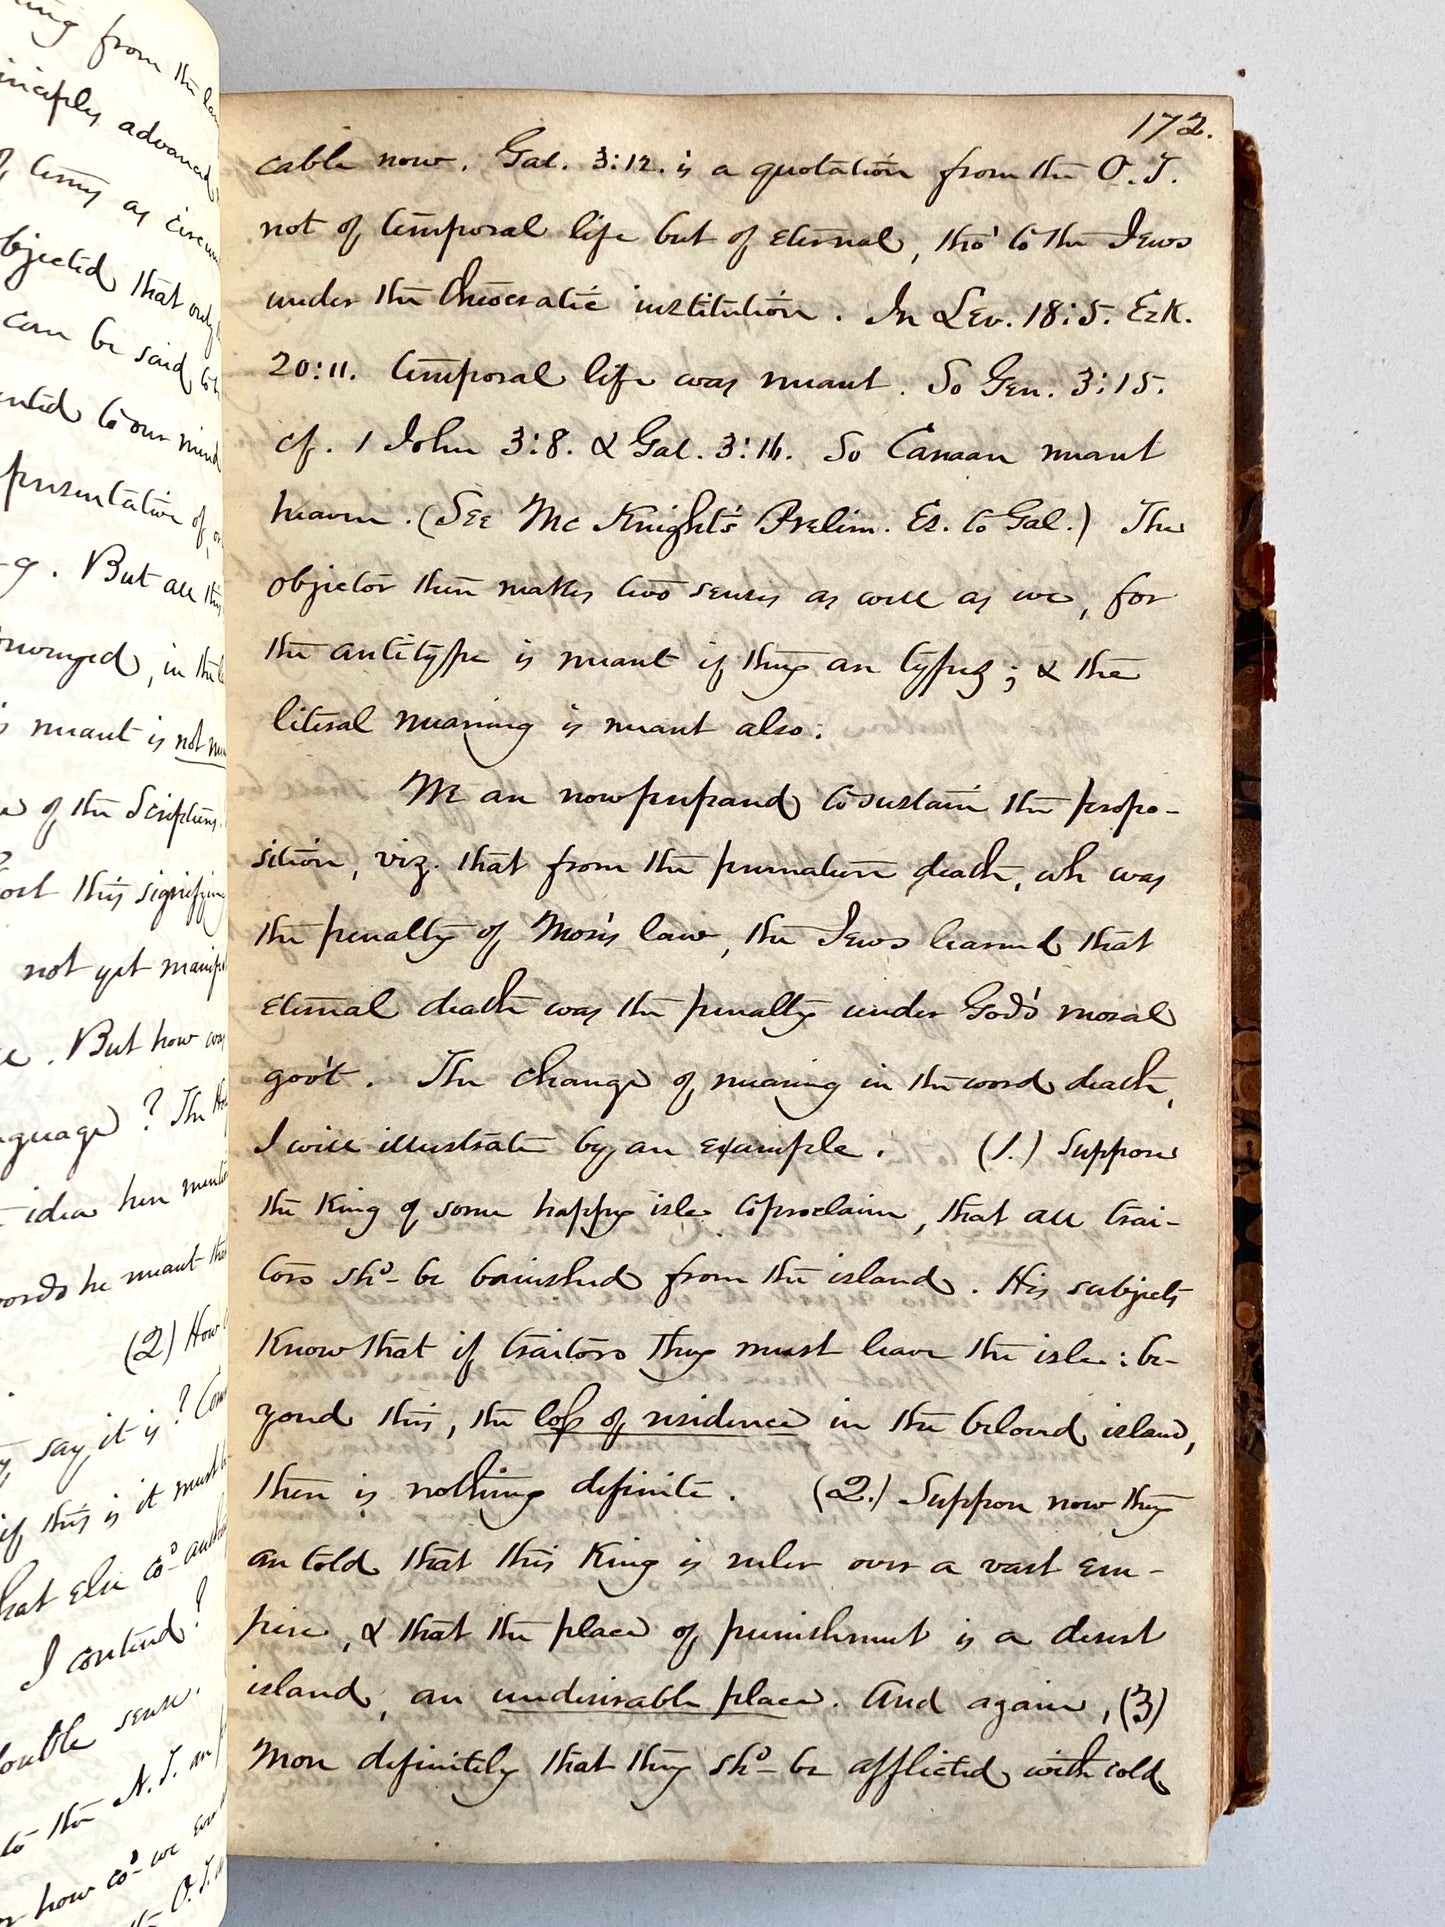 ing from the
inciples advanced
of terms as circum
bjected that only
can be said to
ented to our mind
presentation of,
-g. But all this
onveyed, in the
is meant is not
e of the Scriptures.
ost this signifying
not yet manif
e. But how was
nguage? The
idea here mention
words he meant that
(2) How
say, it is?
if this is it must
hat else co^d
I contend?
double sense.
to the N.T. are
or how co^d we
O.T.
172.
cable now. Gal. 3:12. is a quotation from the O.T.
not of temporal life but of eternal, tho' to the Jews
under the theocratic institution. In Lev. 18:5. Ezk.
20:11. temporal life was meant. So Gen. 3:15.
cf. 1 John 3:8. & Gal. 3:16. So Canaan meant
heaven. (See McKnight's Prelim. Es. to Gal.) The
objector then makes two senses as well as we, for
the antitype is meant if they are types; & the
literal meaning is meant also:
We are now prepared to sustain the propo-
sition, viz. that from the premature death, wh was
the penalty of Mosis law, the Jews learned that
eternal death was the penalty under God's moral
gov't. The change of meaning in the word death,
I will illustrate by an example. (1.) Suppose
the King of some happy isle to proclaim, that all trai-
tors sh^d be banished from the island. His subjects
Know that if traitors they must leave the isle: be-
yond this, the loss of residence in the beloved island,
there is nothing definite. (2.) Suppose now they
are told that this King is ruler over a vast em-
pire, & that the place of punishment is a desert
island, an undesirable place. And again, (3)
More definitely that they sh^d be afflicted with cold